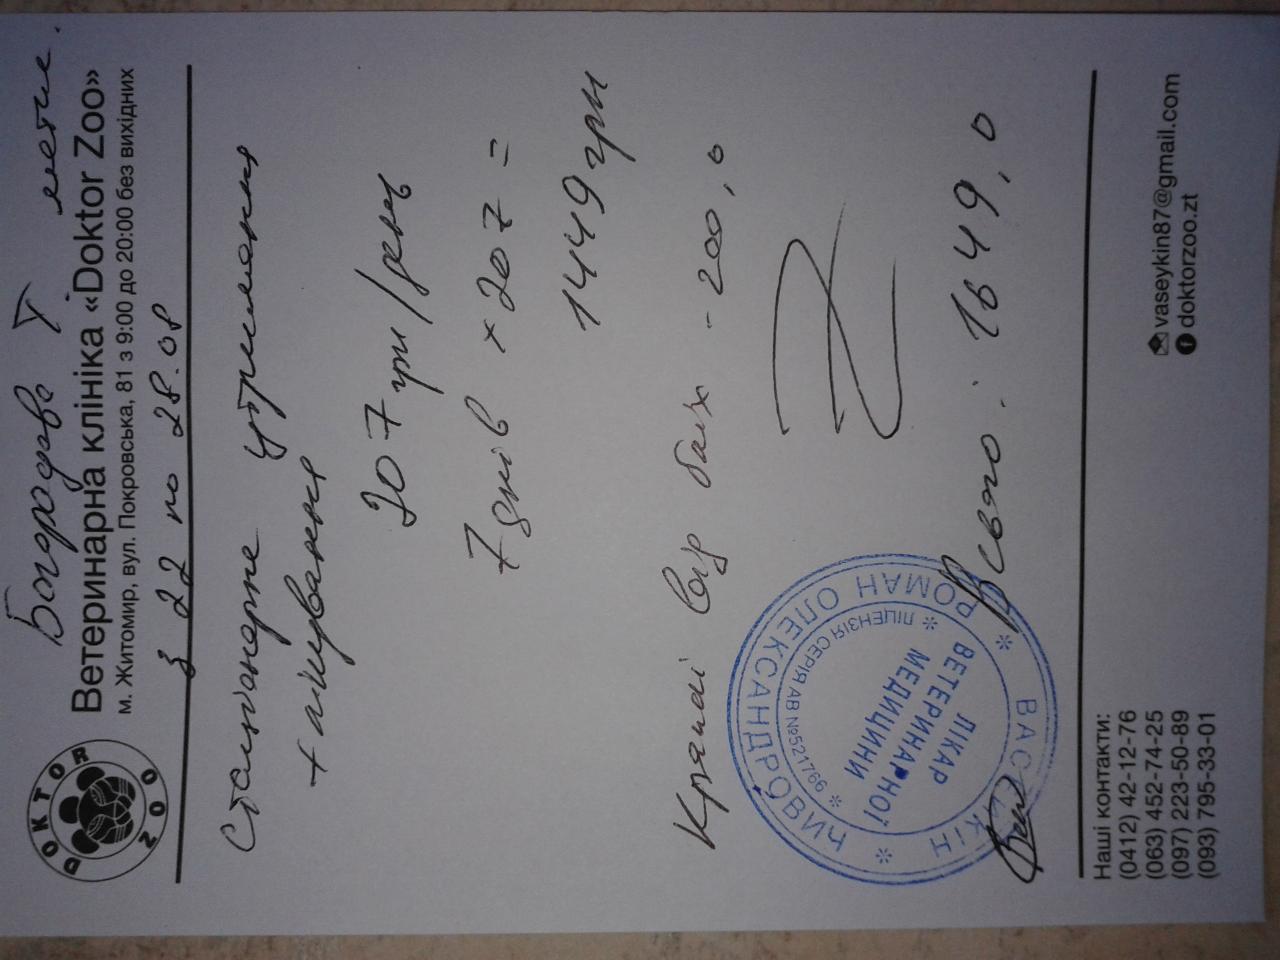 DOKTOR ZOO
Ветеринарна клініка «Doktor Zoo»
м. Житомир, вул. Покровська, 81 з 9:00 до 20:00 без вихідних
з 22 по 28.08
Стаціонарне утримання
+ лікування
207 грн/день
7 днів × 207 =
1449 грн
Краплі
- 200,0
Всього. 1649,0
ВАСЄЙКІН РОМАН ОЛЕКСАНДРОВИЧ
ЛІЦЕНЗІЯ СЕРІЯ АВ №521766
ЛІКАР
ВЕТЕРИНАРНОЇ
МЕДИЦИНИ
Наші контакти:
(0412) 42-12-76
(063) 452-74-25
(097) 223-50-89
(093) 795-33-01
vaseykin87@gmail.com
doktorzoo.zt